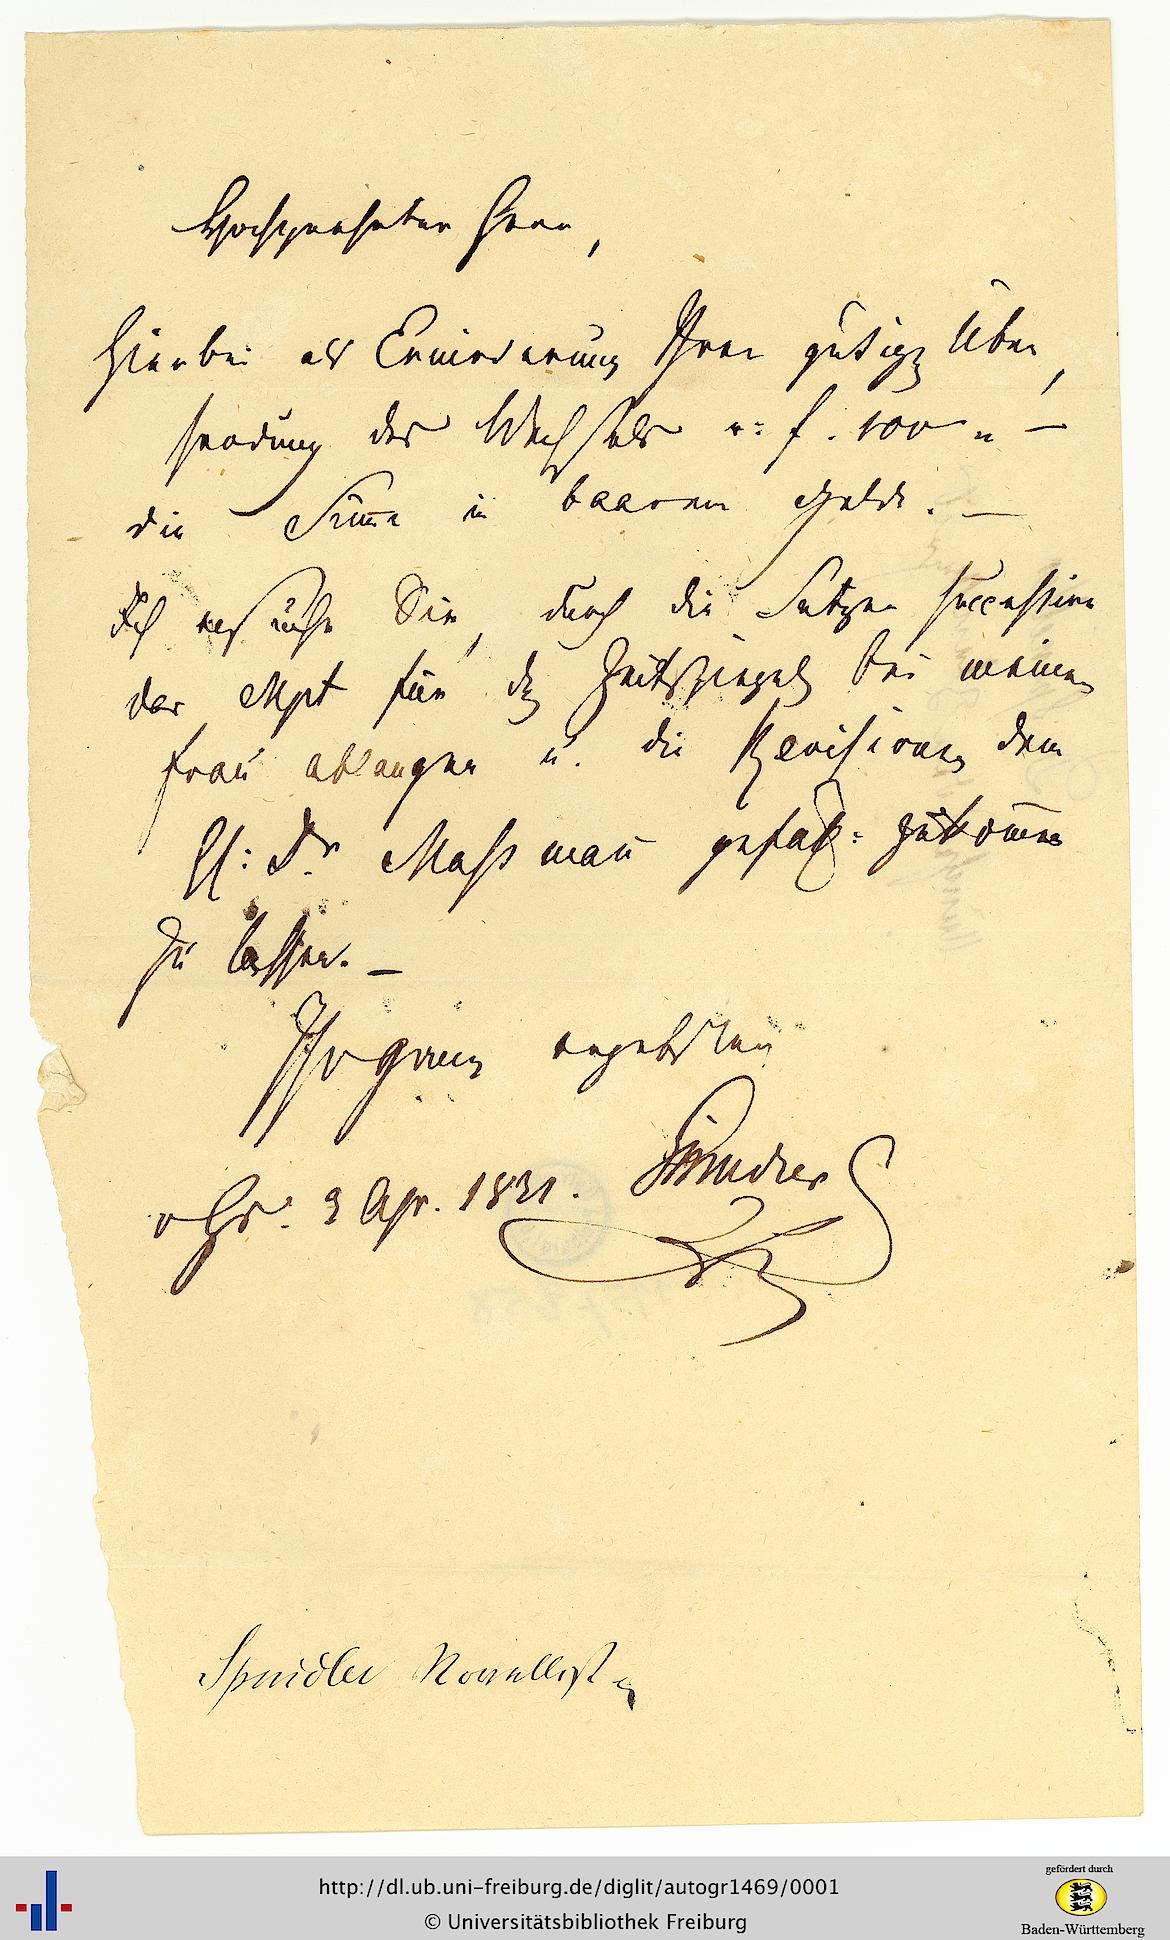 Hochgeehrter Herr,
Hierbei als Erwiederung Ihrer gütign Über
sendung des Wechsels v: f. 100 „ —
die Summe in baarem Gelde. —
Ich ersuche Sie, durch die Setzer successive
das Mpt für dn Zeitspiegel bei meiner
Frau ablangen u. die Revisionen dem
H: Dr. Maßmann gefäll: zukommen
zu lassen. —
Ihr ganz ergebster
Spindler
v Hs. 2 Apr. 1831.
Spindler Novellist
http://dl.ub.uni-freiburg.de/diglit/autogr1469/0001
© Universitätsbibliothek Freiburg
gefördert durch
Baden-Württemberg